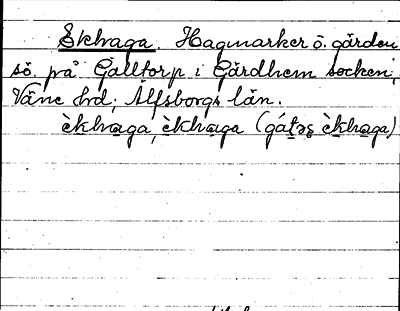 Ekhaga. Hagmarker ö. gården
sö. på Galltorp i Gärdhem socken,
Väne hrd, Älfsborgs län.
èkhaga, èkhaga (gátəs èkhaga)